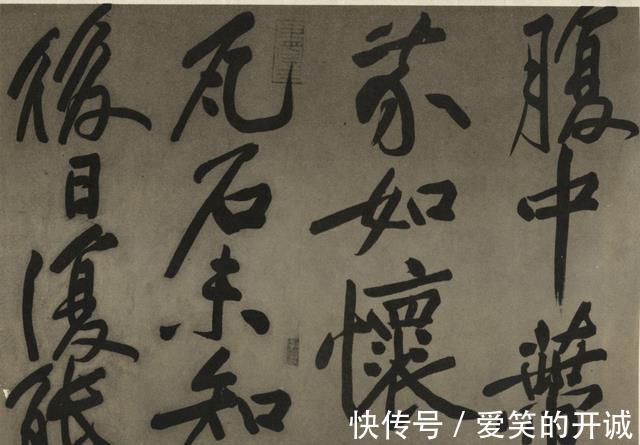 腹中蔕
芥如懷
瓦石未知
後日復能
快传号 / 爱笑的开诚